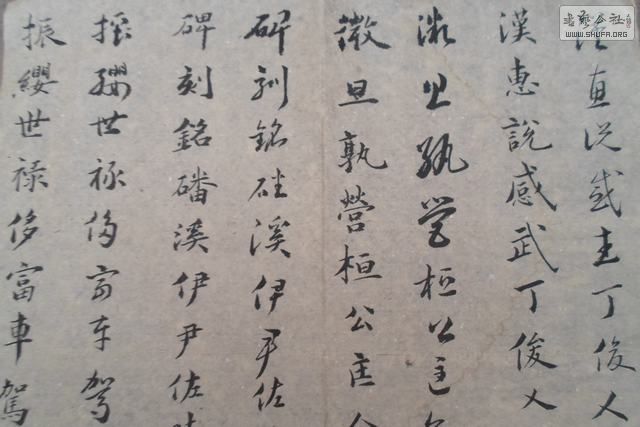 書藝公社
WWW.SHUFA.ORG
漢惠说感武丁俊乂
漢惠說感武丁俊乂
微旦孰營桓公匡
微旦孰營桓公匡
碑刻銘磻溪伊尹佐
碑刻銘磻溪伊尹佐
振纓世禄侈富車駕
振纓世禄侈富車駕